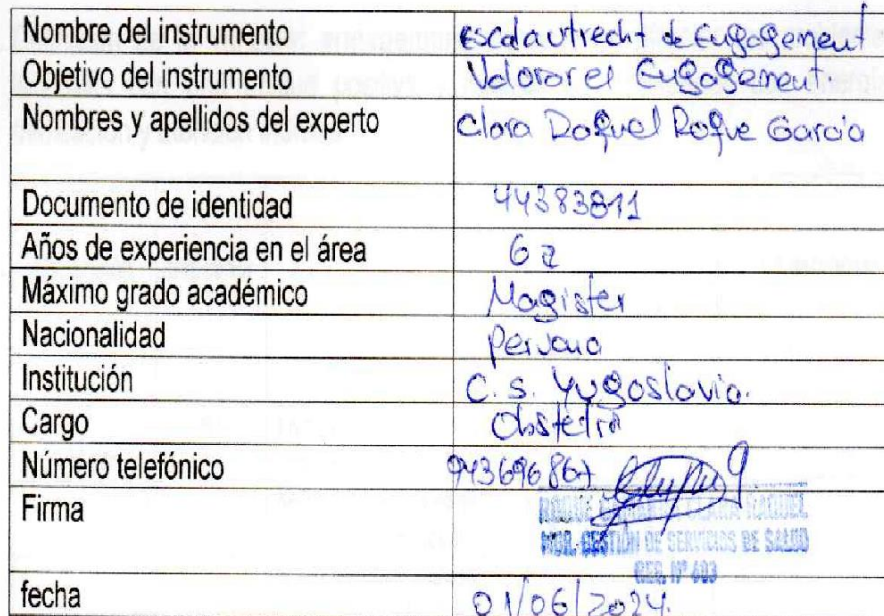 Nombre del instrumento Escala utrecht de Engagement
Objetivo del instrumento Valorar el Engagement
Nombres y apellidos del experto Clara Raquel Roque Garcia
Documento de identidad 44383811
Años de experiencia en el área 6
Máximo grado académico Magister
Nacionalidad peruana
Institución C.S. Yugoslavia.
Cargo Obstetra
Número telefónico 943696867
Firma
CLARA RAQUEL
MGR. GESTIÓN DE SERVICIOS DE SALUD
Nº 603
fecha 01/06/2024.